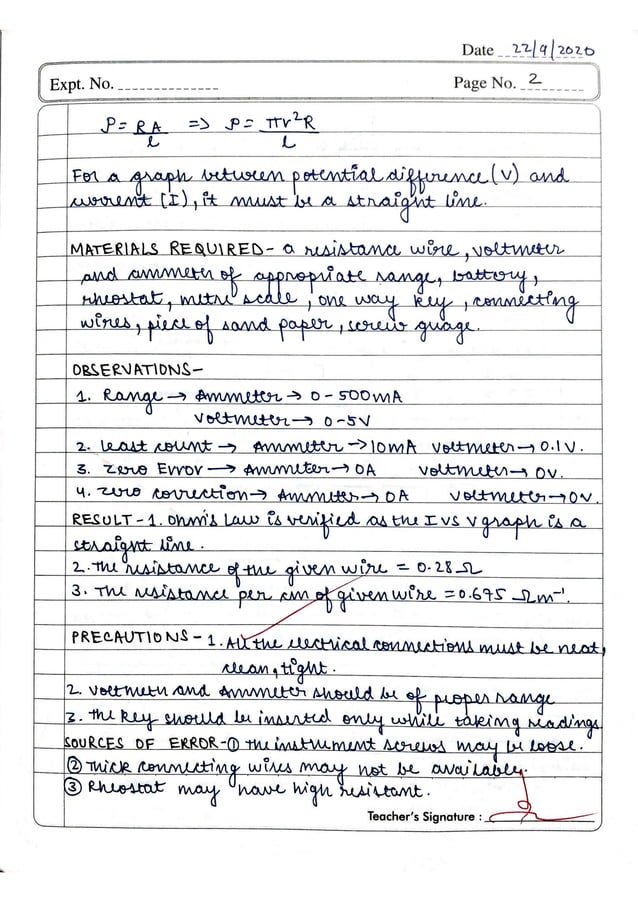 Date 22/9/2020
Expt. No. Page No. 2
ρ = RA/l => ρ = πr²R/l
For a graph between potential difference (V) and
current (I), it must be a straight line.
MATERIALS REQUIRED - a resistance wire, voltmeter
and ammeter of appropriate range, battery,
rheostat, metre scale, one way key, connecting
wires, piece of sand paper, screw guage.
OBSERVATIONS -
1. Range → Ammeter → 0 - 500mA
Voltmeter → 0-5V
2. least count → Ammeter → 10mA Voltmeter → 0.1V.
3. Zero Error → Ammeter → 0A Voltmeter → 0V.
4. Zero correction → Ammeter → 0A Voltmeter → 0V.
RESULT - 1. Ohm's Law is verified as the I vs V graph is a
straight line.
2. The resistance of the given wire = 0.28 Ω
3. The resistance per cm of given wire = 0.675 Ωm⁻¹.
PRECAUTIONS - 1. All the electrical connections must be neat,
clean, tight.
2. Voltmeter and Ammeter should be of proper range
3. The key should be inserted only while taking readings
SOURCES OF ERROR - ① The instrument screws may be loose.
② Thick connecting wires may not be available.
③ Rheostat may have high resistant.
Teacher's Signature :